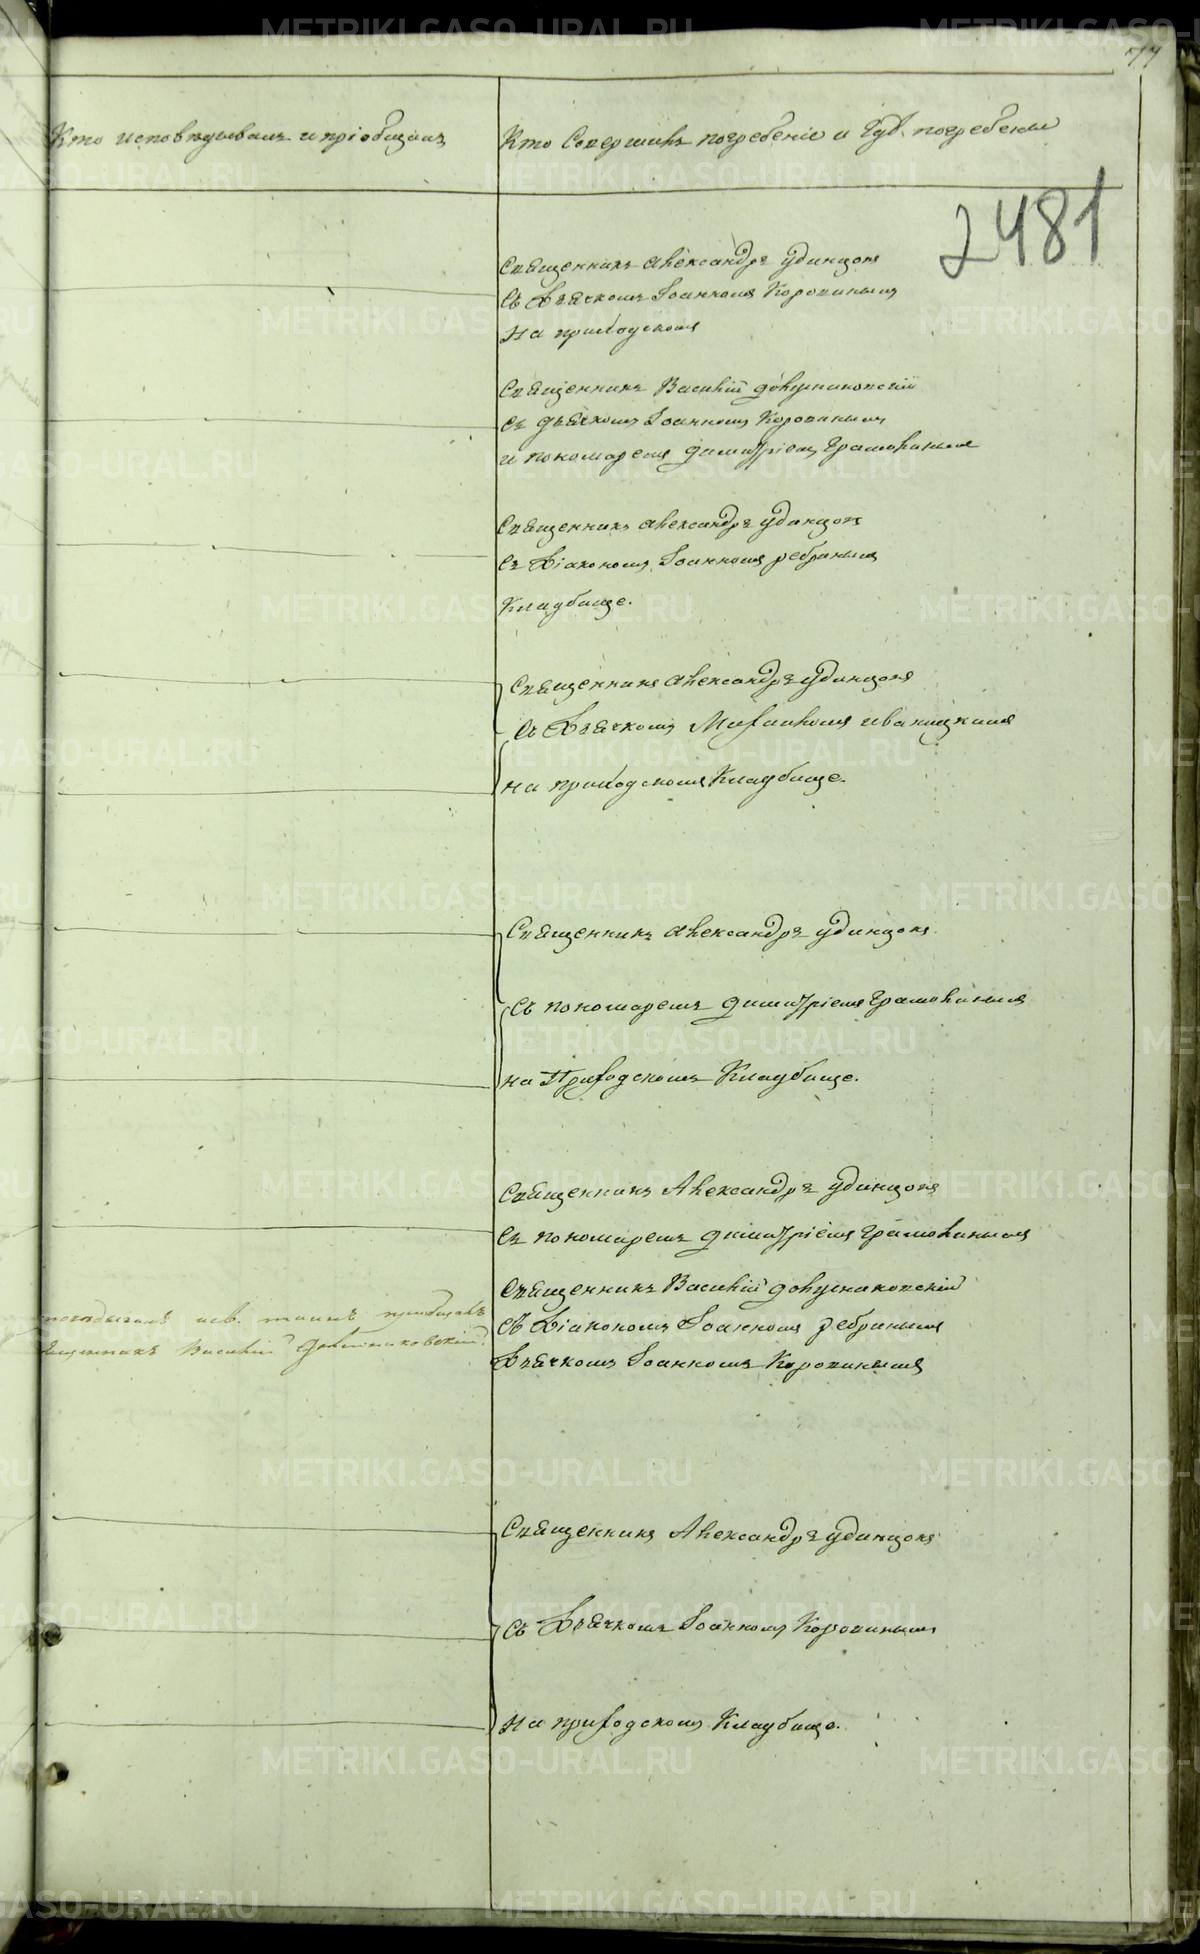 77
Кто исповѣдывалъ и пріобщалъ
Кто Совершилъ погребеніе и Гдѣ погребены
2481
Священникъ Александръ Удинцовъ
Съ Дьячкомъ Іоанномъ Коровинымъ
На приходскомъ
Священникъ Василій Довнаковскій
Съ дьячкомъ Іоанномъ Коровинымъ
и пономаремъ Димитріемъ Грамолинымъ
Священникъ Александръ Удинцовъ
Съ Діакономъ Іоанномъ Ребринымъ
Кладбище.
Священникъ Александръ Удинцовъ
Съ Дьячкомъ Иваницкимъ
на приходскомъ Кладбище.
Священникъ Александръ Удинцовъ
Съ пономаремъ Димитріемъ Грамолинымъ
на Приходскомъ Кладбище.
Священникъ Александръ Удинцовъ
Съ пономаремъ Димитріемъ Грамолинымъ
Священникъ Василій
Съ Діакономъ Іоанномъ Ребринымъ
Дьячкомъ Іоанномъ Коровинымъ
исв. таинъ пріобщалъ
Василій
Священникъ Александръ Удинцовъ
Съ Дьячкомъ Іоанномъ Коровинымъ
На приходскомъ Кладбище.
METRIKI.GASO-URAL.RU